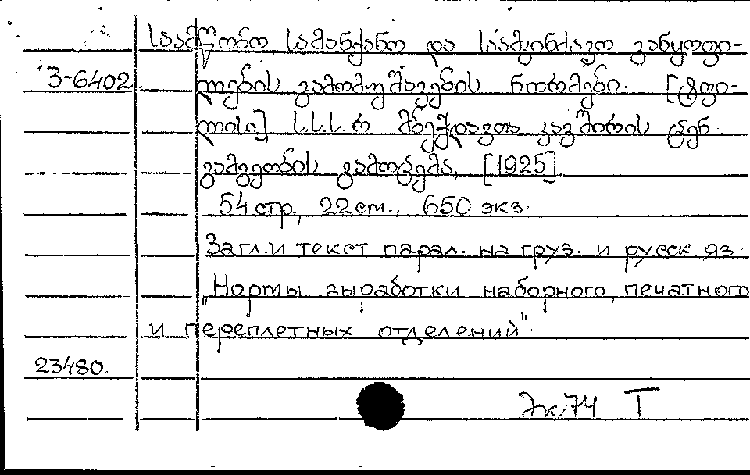 საამწყობო სამანქანო და საამკინძაო განყოფი-
З-6402 ლების გამომუშავების ნორმები. [ტფი-
ლისი] ს.ს.ს.რ. მბეჭდავთა კავშირის ცენ.
გამგეობის გამოცემა, [1925]
54 стр, 22 cm., 650 экз.
Загл. и текст парал. на груз. и русск яз.
„Нормы выработки наборного, печатного
и переплетных отделений".
23480.
Эк. 74 T